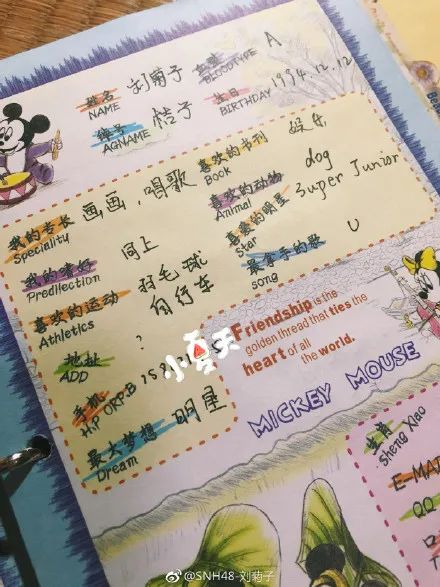 姓名 刘菊子 血型 A
NAME BLOODTYPE
绰号 桔子 生日 1994.12.12
AGNAME BIRTHDAY
我的专长 画画,唱歌
Speciality
喜欢的书刊 娱乐
Book
我的嗜好 同上
Predllection
喜欢的动物 dog
Animal
喜欢的运动 羽毛球
自行车
Athletics
喜爱的明星 Super Junior
Star
地址 ?
ADD
最拿手的歌 U
song
手机
H.P ORP.B 15
最大梦想 明星
Dream
小夏天
Friendship is the
golden thread that ties the
heart of all
the world.
MICKEY MOUSE
生肖
sheng Xiao
E-MA
QQ
@SNH48-刘菊子